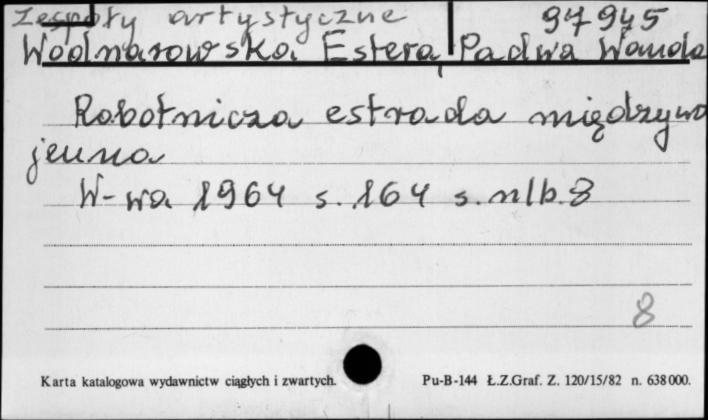 Zespoły artystyczne 97945
Wodnarowska Estera, Padwa Wanda
Robotnicza estrada międzywo
jenna
W-wa 1964 s. 164 s. nlb. 8
8
Karta katalogowa wydawnictw ciągłych i zwartych. Pu-B-144 Ł.Z.Graf. Z. 120/15/82 n. 638000.